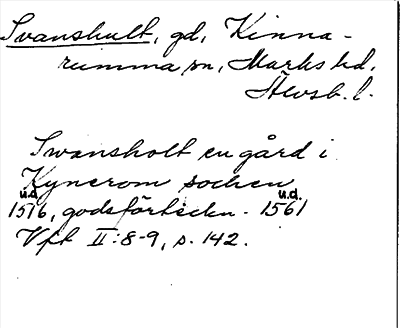 Svanshult, gd, Kinna-
rumma sn, Marks hd,
Älvsb. l.
Swansholt en gård i
Kynerom sochen
u.d. u.d.
1516, godsförteckn. 1561
Vft II:8-9, s. 142.